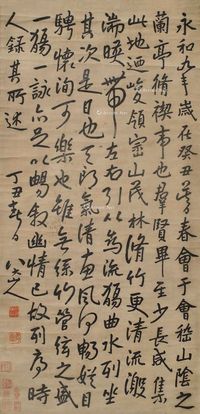 永和九年歲在癸丑暮春會于會稽山陰之
蘭亭脩禊事也群賢畢至少長咸集
此地迺峻領崇山茂林脩竹更清流激
湍暎帶左右引以為流觴曲水列坐
其次是日也天朗氣清惠風和暢娛目
騁懷洵可樂也雖無絲竹管絃之盛
一觴一詠亦足以暢敘幽情已故列序時
人錄其所述
丁丑春日 八大山人